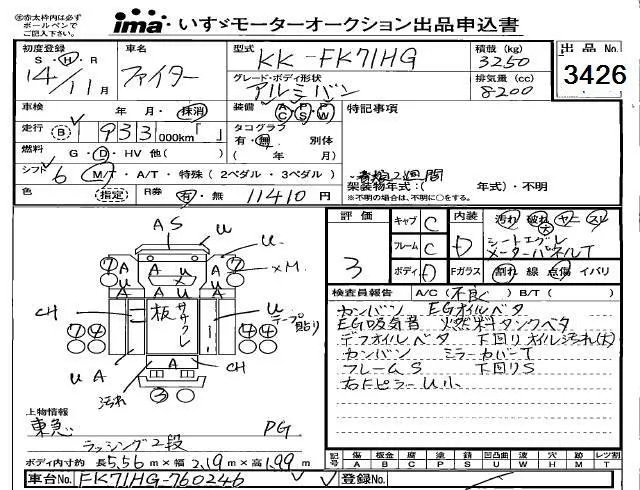 ※赤太枠内は必ず
ボールペンで
ご記入下さい。
ima いすゞモーターオークション出品申込書
初度登録 S・H・R 14年11月
車名 ファイター
型式 KK-FK71HG
積載(kg) 3250
出品No. 3426
グレード・ボディ形状 アルミバン
排気量(cc) 8200
車検 年・月・抹消
装備 AC PS PW
特記事項
走行 B 933 000km「 」
タコグラフ 有・無 別体
( 年 月)
燃料 G・D・HV 他( )
シフト 6 M/T・A/T・特殊(2ペダル・3ペダル)
書類2週間
架装物年式:( 年式)・不明
※不明の場合は、不明に○をする。
色 (指定) R券 有・無 11410円
評価 3
キャブ C
フレーム C
ボディ D
内装 D 汚れ 破れ大 ヤニ スレ
シートエグレ
メーターパネルT
Fガラス 割れ 線 点傷 イバリ
検査員報告 A/C(不良) B/T( )
カンバン EGオイルベタ
EG吸気音 燃料タンクベタ
デフオイルベタ 下回りオイル汚れ(大)
カンバン ミラーカバーT
フレームS 下回りS
右FピラーU小
AS
U
U
×M
CH
板
ササクレ
U
テープ貼り
U A
CH
汚れ
上物情報
東急 PG
ラッシング2段
ボディ内寸約 長5.56m×幅2.19m×高1.99m
記号 傷A 板金B 腐C ペンキP 錆S 凹凸曲U 波W 穴H 欠M レツ割T
車台No. FK71HG-760246
登録No.